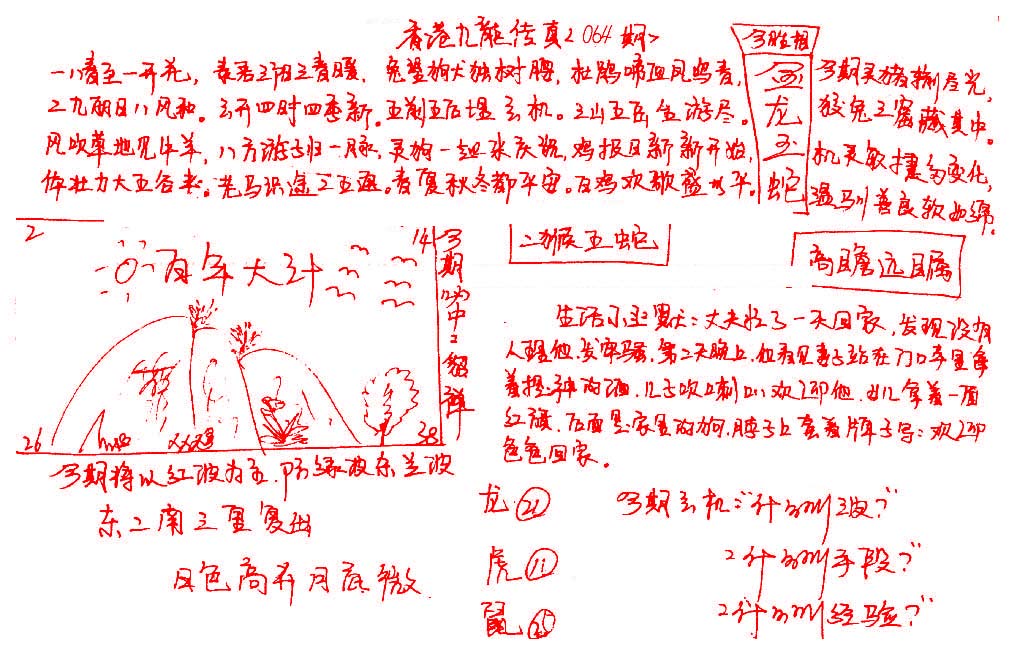 香港九龍传真<064期>
一八春至一开花，春君三阳三春暖，兔望狗犬独树腰，杜鹃啼血风鸣春，
二九雨日八风和。云开四时四季新。五前五后塭玄机。三山五岳生游尽。
风吹草地见牛羊，八方游子归一脉，灵狗一起来庆祝，鸡报日新新开始，
体壮力大五谷来。老马识途三五通。春夏秋冬都平安。日鸡欢歌盛太平。
今期灵猪捌尽光，
狡兔三窟藏其中。
机灵敏捷多变化，
温驯善良软如绵。
今胜相
金
龙
玉
蛇
二猴五蛇
高瞻远瞩
2
14
百年大计
26
38
今期必中二组祥
今期将以红波为主，防绿波杀兰波
东二南三里复出
日色高升月底
生活小幽默：丈夫忙了一天回家，发现没有
人理他，发牢骚，第二天晚上，他看见妻子站在门口手里拿
着提神的酒，儿子吹喇叭欢迎他，女儿拿着一面
红旗，后面是家里的狗，脖子上套着牌子写：欢迎
色色回家。
龙㉑
虎⑪
鼠
今期玄机："什么叫
"什么叫手段？"
"什么叫经验？"